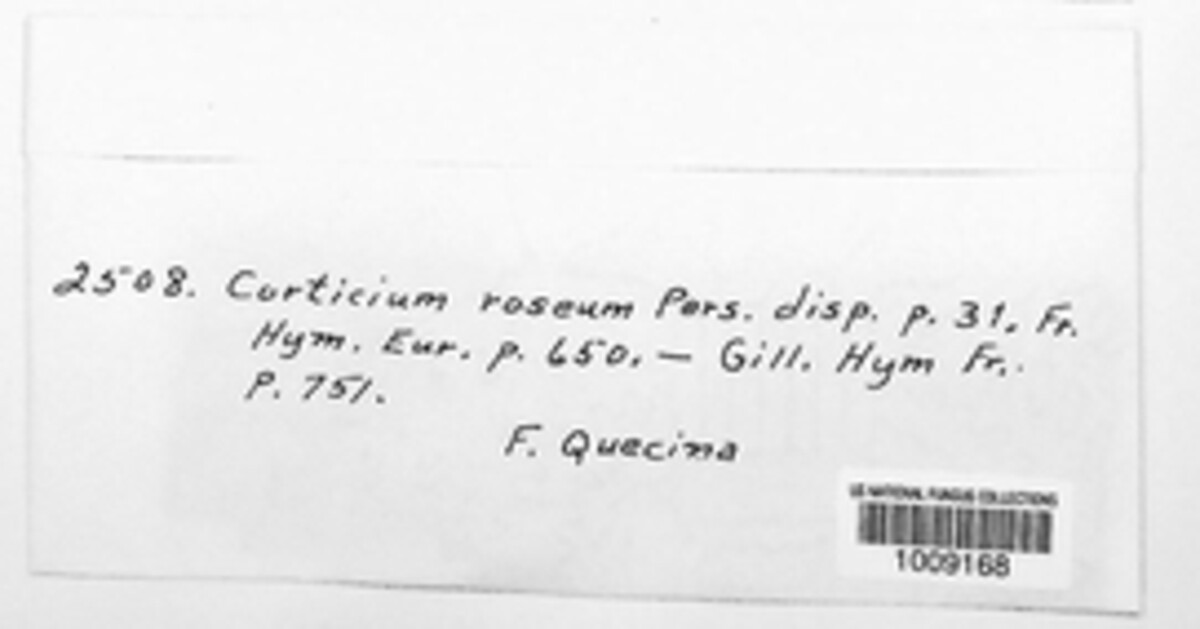 2508. Corticium roseum Pers. disp. p. 31. Fr.
Hym. Eur. p. 650. — Gill. Hym Fr..
P. 751.
F. Quecina
US NATIONAL FUNGUS COLLECTIONS
1009168